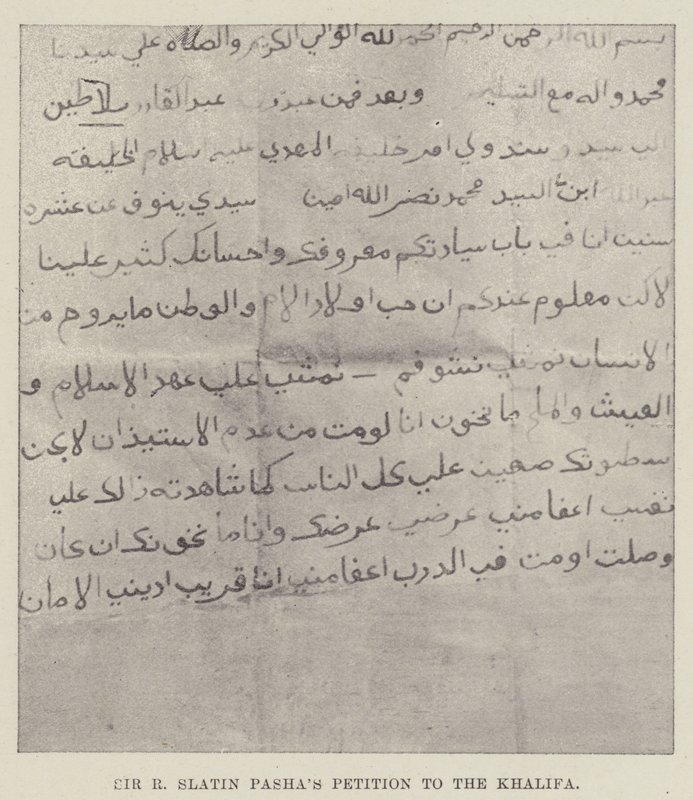 بسم الله الرحمن الرحيم الحمد لله الوالي الكريم والصلاه علي سيدنا
محمد واله مع التسليم وبعد فمن عبد ربه عبد القادر سلاطين
الي سيده وسندو ولي امره خليفة المهدي عليه سلام الخليفه
عبد الله ابن السيد محمد نصر الله امين سيدي ينوف عن عشره
سنين انا في باب سيادتكم معروفك واحسانك كثير علينا
لاكن معلوم عندكم ان حب اولاد الام والوطن ما يروح من
الانسان نمثلي نشوفم – نمشي علي عهد الاسلام و
العيش والملح ما نخون انا لومت من عدم الاستيذان لاكن
سطوتك صعبن علي كل الناس كما شاهدته ذالك علي
نفسي اعفا مني عرضي عرضك وانا ما نخونك ان كان
وصلت او مت في الدرب اعفا مني انا قريب اديني الامان
SIR R. SLATIN PASHA'S PETITION TO THE KHALIFA.